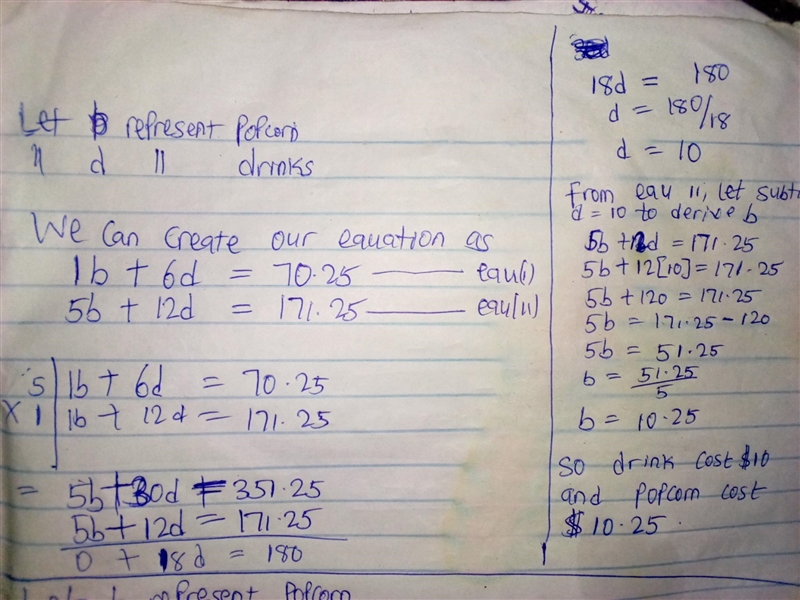 Let b represent popcorn
" d " drinks
We can create our equation as
1b + 6d = 70.25 —— equ(i)
5b + 12d = 171.25 —— equ(ii)
5 | 1b + 6d = 70.25
x 1 | 1b + 12d = 171.25
= 5b + 30d = 351.25
5b + 12d = 171.25
0 + 18d = 180
represent popcorn
18d = 180
d = 180/18
d = 10
from equ ii, let subt
d = 10 to derive b
5b + 12d = 171.25
5b + 12[10] = 171.25
5b + 120 = 171.25
5b = 171.25 - 120
5b = 51.25
b = 51.25/5
b = 10.25
So drink cost $10
and popcorn cost
$10.25.